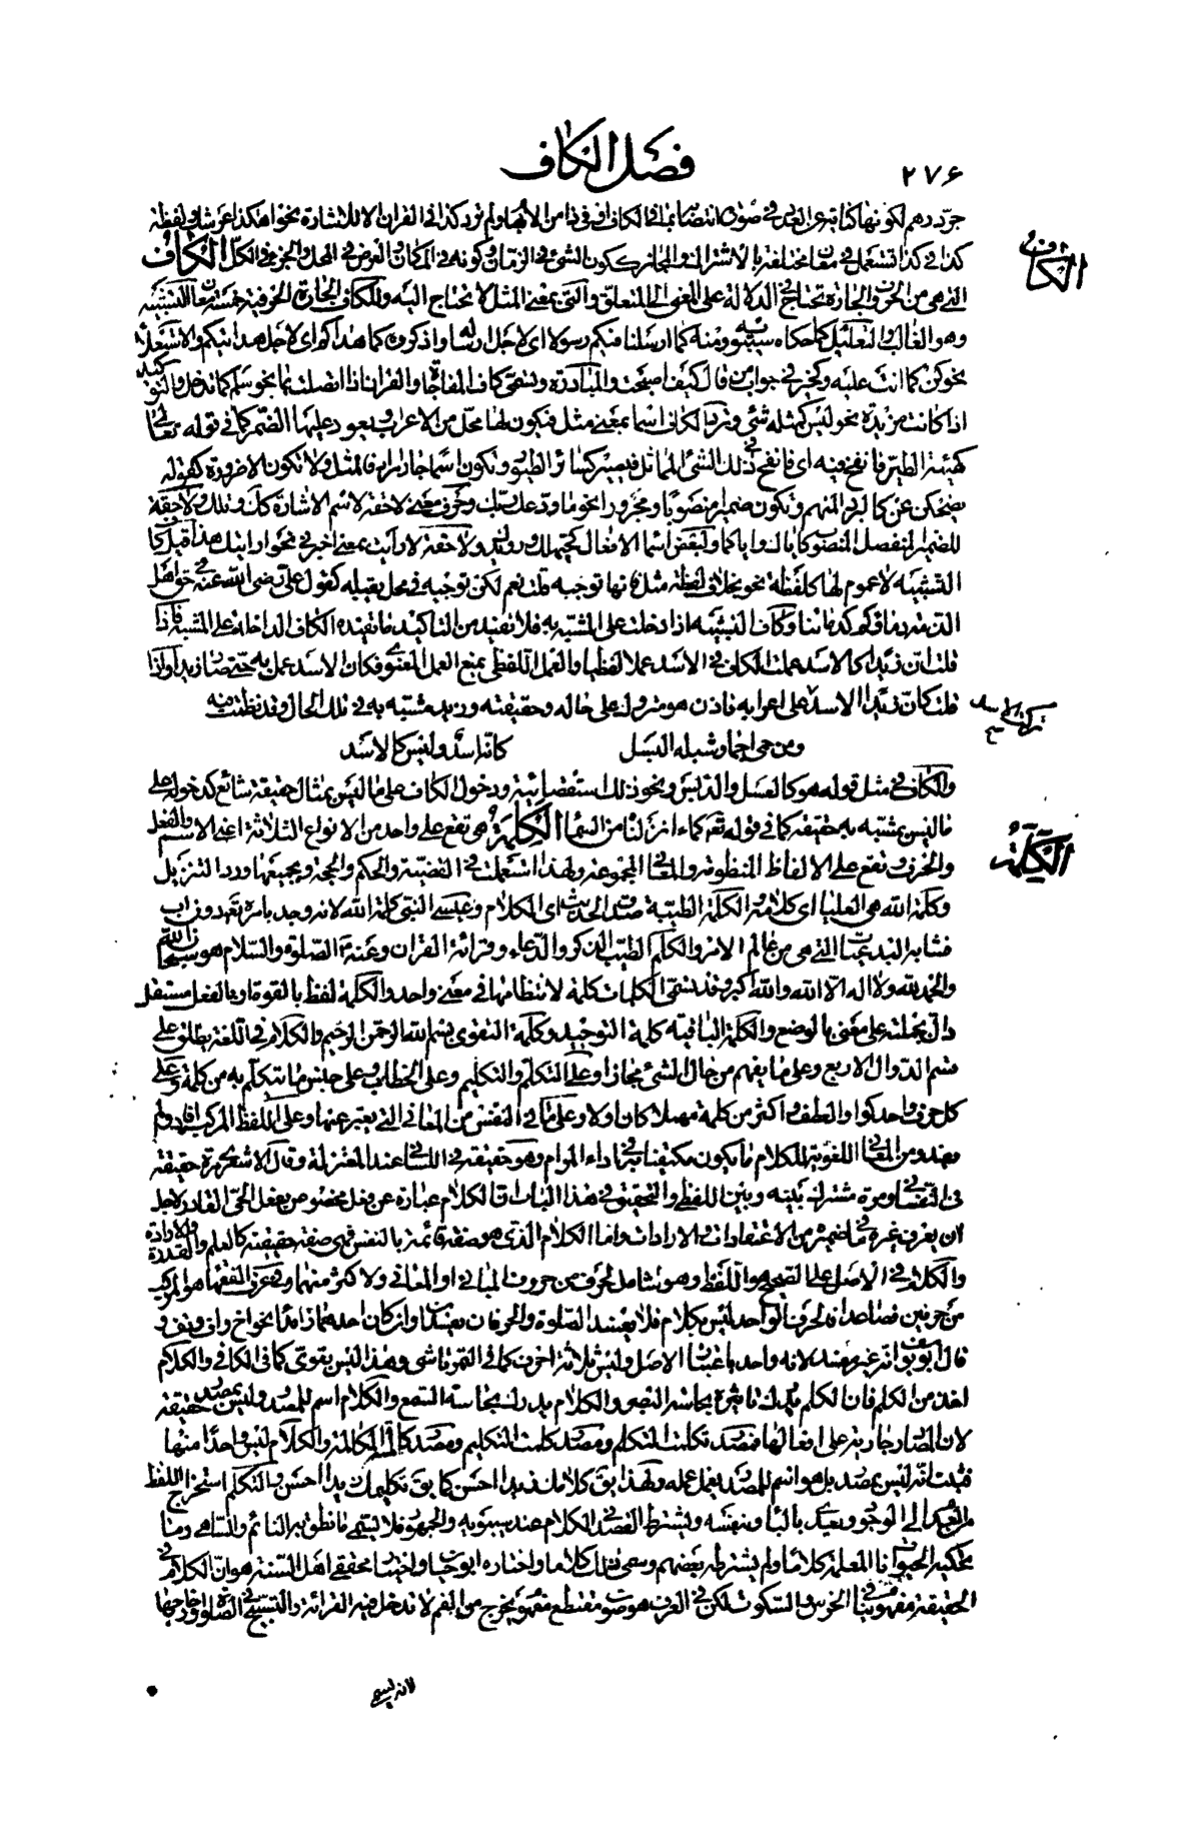 ٢٧۶
فصل الكاف
جرّ درهم لكونها كناية عن العدد في ولم نرد كذا في القرآن الا للاشارة نحو اهكذا عرشك ولفظة
كذا في كذا تستعمل في معان مختلفة بالاشتراك والمجاز ككون الشئ في الزمان وكونه في المكان والعرض في المحل والجزء في الكل الكاف
الكاف
التي هي من الحروف الجارة تحتاج في الدلالة على المعنى الى المتعلق والتي بمعنى المثل لا تحتاج اليه وللكاف الجارة الحرفية خمسة معان التشبيه
وهو الغالب والتعليل كما حكاه سيبويه ومنه كما ارسلنا منكم رسولا اى لاجل ارساله واذكروه كما هداكم اى لاجل هدايتكم والاستعلاء
نحو كن كما انت عليه وكخير في جواب من قال كيف اصبحت والمبادرة وتسمى كاف المفاجاة والقران اذا اتصلت بما نحو سلم كما تدخل والتوكيد
اذا كانت مزيدة نحو ليس كمثله شئ وترد الكاف اسما بمعنى مثل فيكون لها محل من الاعراب ويعود عليها الضمير كما في قوله تعالى
كهيئة الطير فانفخ فيه اى فانفخ في ذلك الشئ المماثل فيصير كسائر الطيور وتكون اسما جارا مرادفا لمثل ولا تكون الا ضرورة كقوله
يضحكن عن كالبرد المنهم وتكون ضميرا منصوبا ومجرورا نحو ما ودعك ربك وحرف معنى لاحقة لاسم الاشارة كذلك وتلك ولاحقة
للضمير المنفصل المنصوب كاياك واياكما ولبعض اسماء الافعال كحيهلك ورويدك ولاحقة لارأيت بمعنى اخبرني نحو ارايتك هذا قيل كاف
التشبيه لا عموم لها كلفظة نحو بخلاف لفظة مثل فانها توجبه قلنا نعم لكن توجبه في محل يقبله كقول على رضى الله عنه في حق اهل
الذمة دماؤكم كدمائنا وكان التشبيه اذا دخلت على المشبه به فلا تفيد من التأكيد ما تفيده الكاف الداخلة على المشبه فاذا
قلت ان زيدا كالاسد عملت الكاف في الاسد عملا لفظيا والعمل اللفظى يمنع العمل المعنوى فكان الاسد عمل به حتى صار زيدا واذا
قلت كان زيدا الاسد على اعرابه فاذن هو متروك على حاله وحقيقته وزيد مشبه به في تلك الحال وقد نظمت فيه
ومن حمى احماؤ شبله البسل كانه اسد وليس كالاسد
والكاف في مثل قوله هو كالعسل والدبس ونحو ذلك استقصائية ودخول الكاف على ما ليس بمثال حقيقة شائع كدخوله على
ما ليس بمشبه به حقيقة كما في قوله تعالى كماء انزلناه من السماء الكلمة هى تقع على واحد من الانواع الثلاثة اعنى الاسم والفعل
الكلمة
والحرف وتقع على الالفاظ المنظومة والمعاني المجموعة ولهذا استعملت في القضية والحكم والحجة وبجميعها ورد التنزيل
وكلمة الله هى العليا اى كلامه والكلمة الطيبة صدقة الحديث اى الكلام وعيسى النبى كلمة الله لانه وجد بامره تعالى دون اب
فشابه البديعيات التي هى من عالم الامر والكلم الطيب الذكر والدعاء وقرائة القران وعنه عليه الصلوة والسلام هو سبحان الله
والحمد لله ولا اله الا الله والله اكبر وقد تسمى الكلمات كلمة لانتظامها في معنى واحد والكلمة لفظ بالقوة او بالفعل مستقل
دال بجملته على معنى بالوضع والكلمة الباقية كلمة التوحيد وكلمة التقوى بسم الله الرحمن الرحيم والكلام في اللغة يطلق على
قسم الدوال الاربع وعلى ما يفهم من حال الشئ مجازا وعلى التكلم والتكليم وعلى الخطاب وعلى جنس ما يتكلم به من كلمة وعلى
كل حرف واحد كواو العطف او اكثر من كلمة مهملا كان اولا وعلى ما في النفس من المعاني التي يعبر عنها وعلى اللفظ المركب افاد ولم
يفد ومن المعاني اللغوية للكلام ما يكون مكتفيا به في اداء المرام وهو حقيقة في اللساني عند المعتزلة وقال الاشعرى مرة حقيقة
في النفساني ومرة مشترك بينه وبين اللفظى والتحقيق في هذا الباب ان الكلام عبارة عن فعل مخصوص يفعله الحى القادر لاجل
ان يعرف غيره ما في ضميره من الاعتقادات والارادات واما الكلام الذى هو صفة قائمة بالنفس فهى صفة حقيقة كالعلم والقدرة والارادة
والكلام في الاصل على الصحيح هو اللفظ وهو شامل لحرف من حروف المباني او المعاني ولاكثر منهما وفي عرف الفقهاء هو المركب
من حرفين فصاعدا فالحرف الواحد ليس بكلام فلا يفسد الصلوة والحرفان يفسدان وان كان احدهما زائدا نحو اخ واف وتف و
قال ابو يوسف انه غير مفسد لانه واحد باعتبار الاصل وليس ثلاثة احرف كما في القرتاشى وهذا ليس بقوى كما في الكافي والكلام
اخذ من الكلم فان الكلم يدرك تاثيره بحاسة البصر والكلام يدرك بحاسة السمع والكلام اسم للمصدر وليس بمصدر حقيقة
لان المصادر جارية على افعالها فمصدر تكلمت التكلم ومصدر كلمت التكليم ومصدر كالمت المكالمة والكلام ليس واحدا منها
فثبت انه ليس بمصدر بل هو اسم للمصدر يعمل عمله ولهذا يق كلامك زيدا احسن كما يق تكليمك زيدا احسن والتكلم استخراج اللفظ
من العدم الى الوجود ويعدى بالباء وبنفسه ويشترط القصد في الكلام عند سيبويه والجمهور فلا يسمى ما نطق به النائم والساهى وما
يحكيه الحيوانات المعلمة كلاما ولم يشترطه بعضهم وسمى ذلك كلاما واختاره ابو حيان واختيار محققى اهل السنة هو ان الكلام في
الحقيقة مفهوم ينافي الخرس والسكوت لكن في العرف هو صوت مقتطع مفهوم يخرج من الفم لا تدخل فيه القرائة والتسبيح في الصلوة وخارجها
لانه يسمى